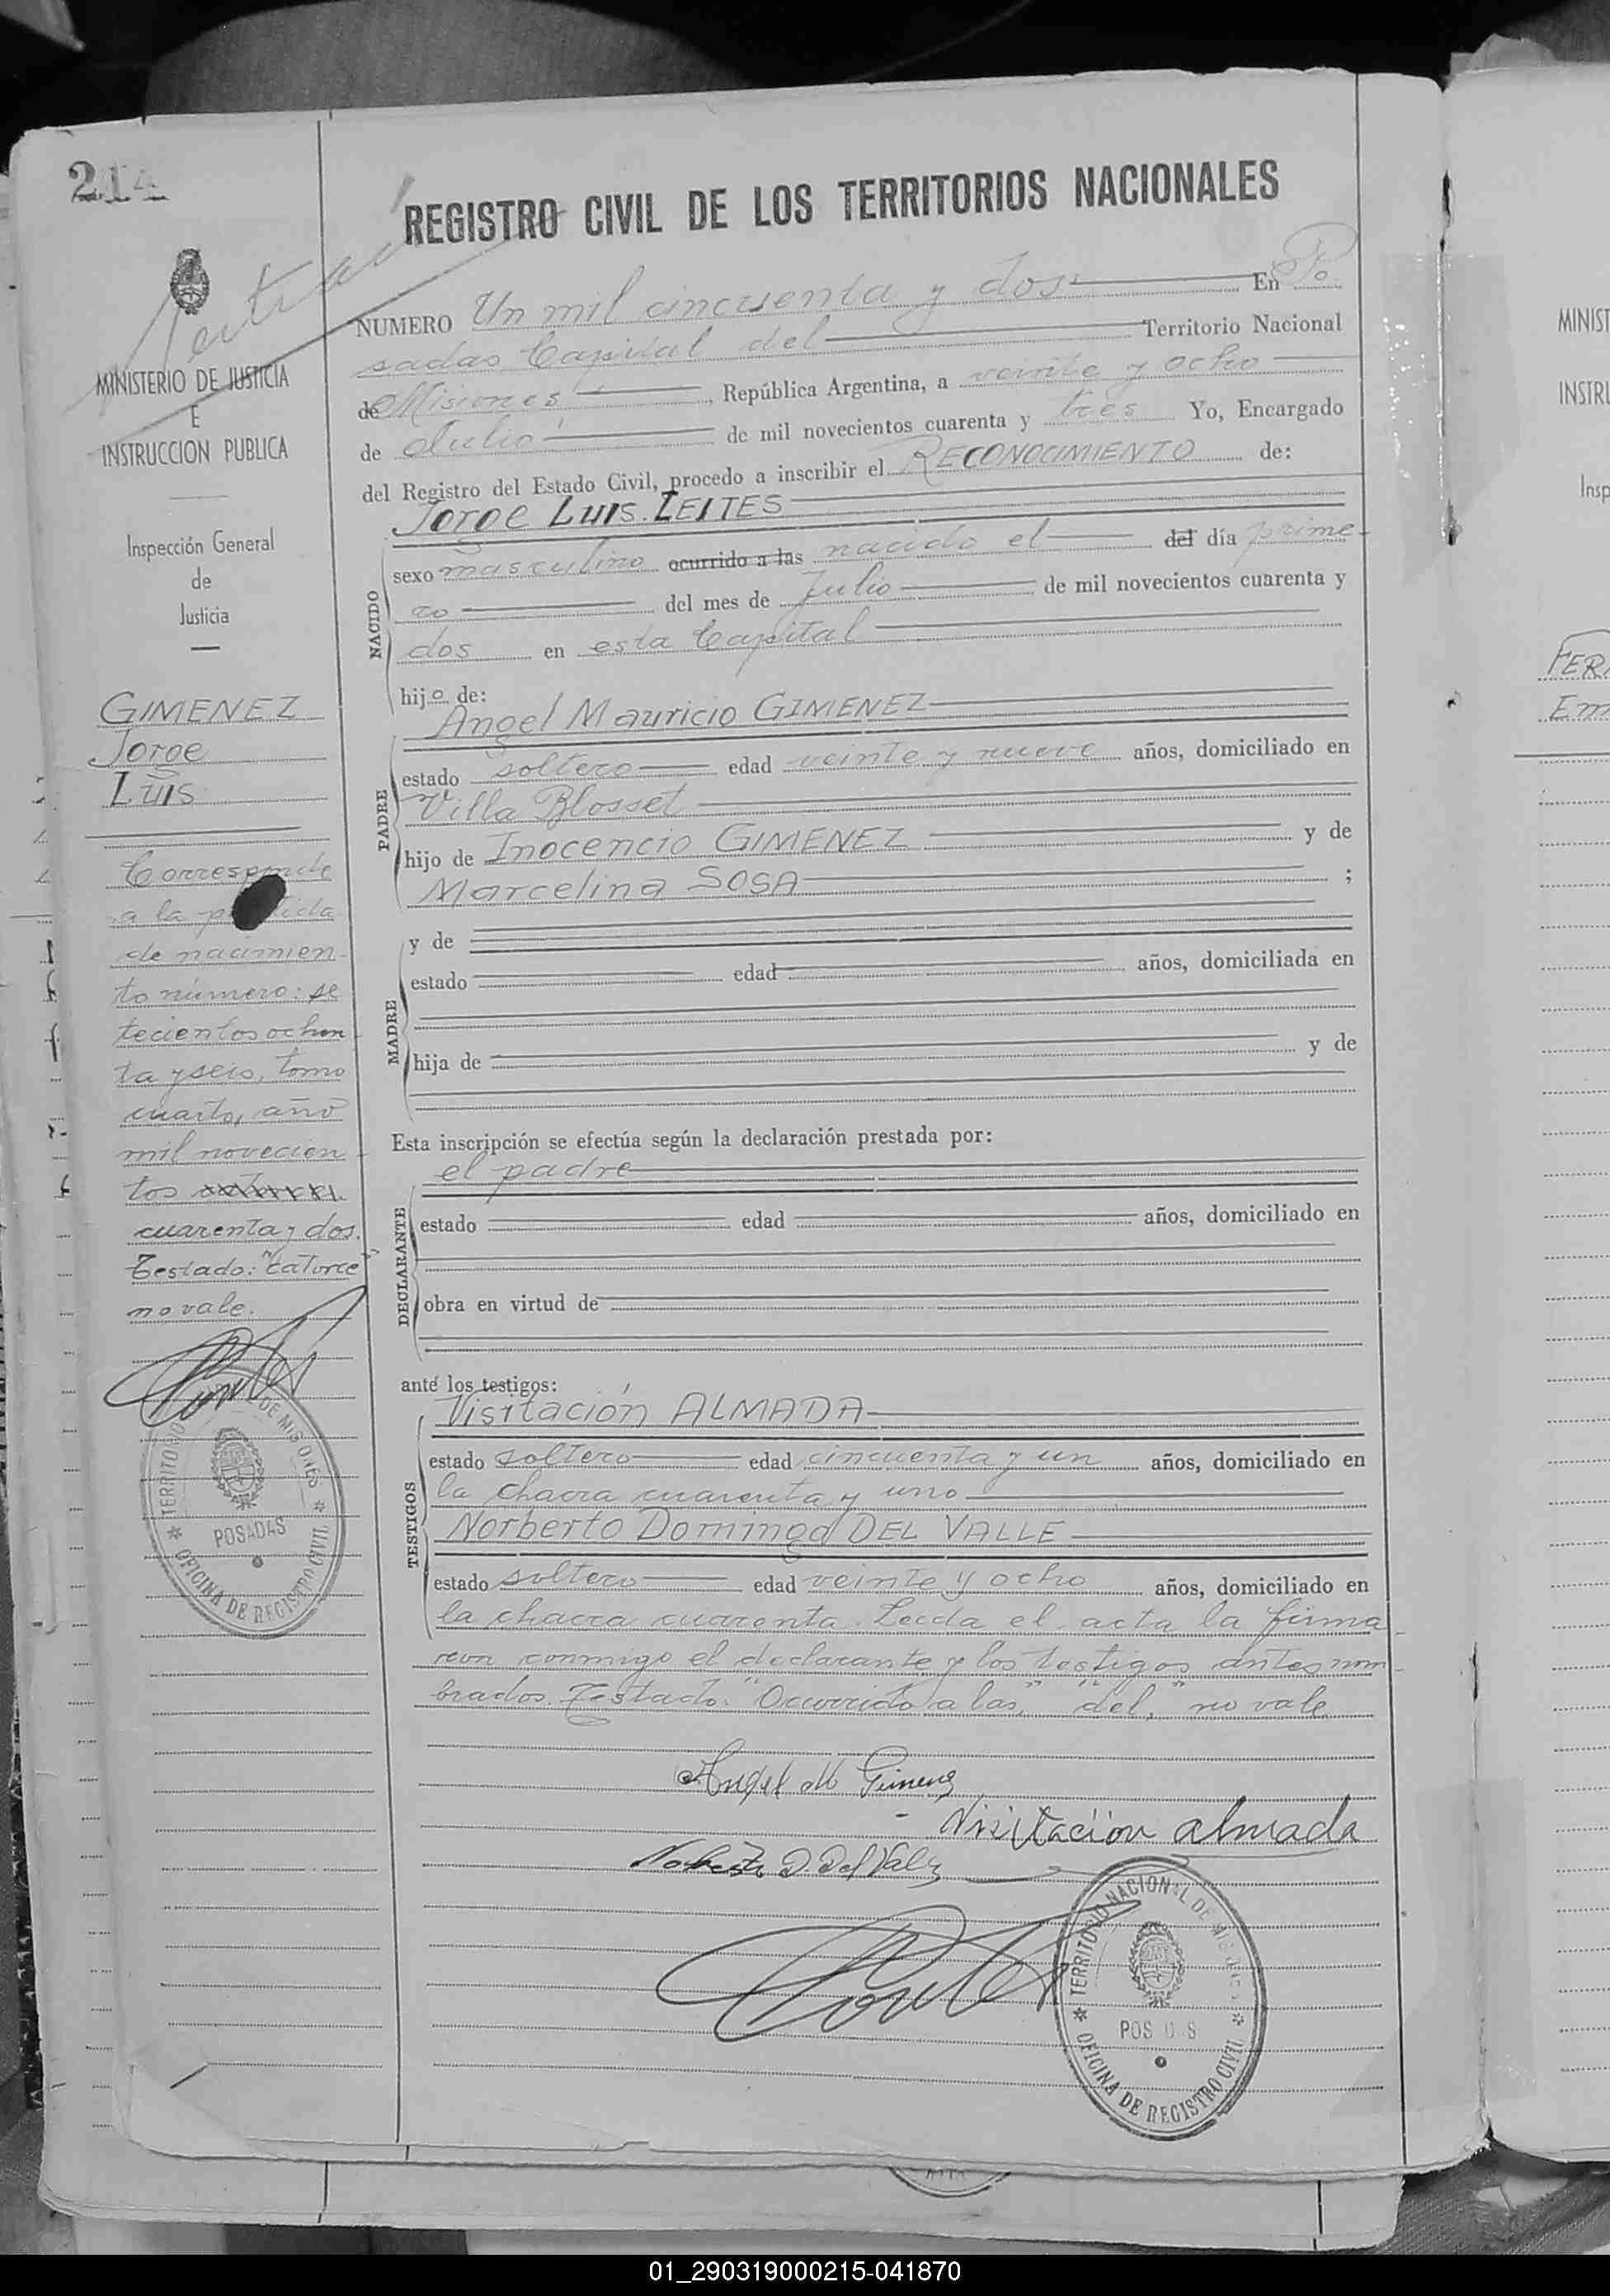 214
REGISTRO CIVIL DE LOS TERRITORIOS NACIONALES
NUMERO Un mil cincuenta y dos En Po
sadas Capital del Territorio Nacional
de Misiones, República Argentina, a veinte y ocho
de Julio de mil novecientos cuarenta y tres Yo, Encargado
del Registro del Estado Civil, procedo a inscribir el RECONOCIMIENTO de:
Jorge Luis LEITES
NACIDO
sexo masculino ocurrido a las nacido el del día prime-
ro del mes de Julio de mil novecientos cuarenta y
dos en esta Capital
hijo de:
PADRE
Angel Mauricio GIMENEZ
estado soltero edad veinte y nueve años, domiciliado en
Villa Blosset
hijo de Inocencio GIMENEZ y de
Marcelina SOSA ;
MADRE
y de
estado edad años, domiciliada en
hija de y de
Esta inscripción se efectúa según la declaración prestada por:
el padre
DECLARANTE
estado edad años, domiciliado en
obra en virtud de
ante los testigos:
TESTIGOS
Visitación ALMADA
estado soltero edad cincuenta y un años, domiciliado en
la chacra cuarenta y uno
Norberto Domingo DEL VALLE
estado soltero edad veinte y ocho años, domiciliado en
la chacra cuarenta. Leida el acta la firma
ron conmigo el declarante y los testigos antes nom-
brados. Testado: "Ocurrido a las," "del," no vale
Angel M Gimenez
Visitación almada
Norberto D. Del Valle
TERRITORIO NACIONAL DE MISIONES
POSADAS
OFICINA DE REGISTRO CIVIL
MINISTERIO DE JUSTICIA
E
INSTRUCCION PUBLICA
Inspección General
de
Justicia
GIMENEZ
Jorge
Luis
Corresponde
a la partida
de nacimien-
to número: se
tecientos ochen
ta y seis, tomo
cuarto, año
mil novecien-
tos
cuarenta y dos.
Testado: "catorce"
no vale.
TERRITORIO DE MISIONES
POSADAS
OFICINA DE REGISTRO CIVIL
MINIST
INSTRU
Insp
FER
Em
01_290319000215-041870